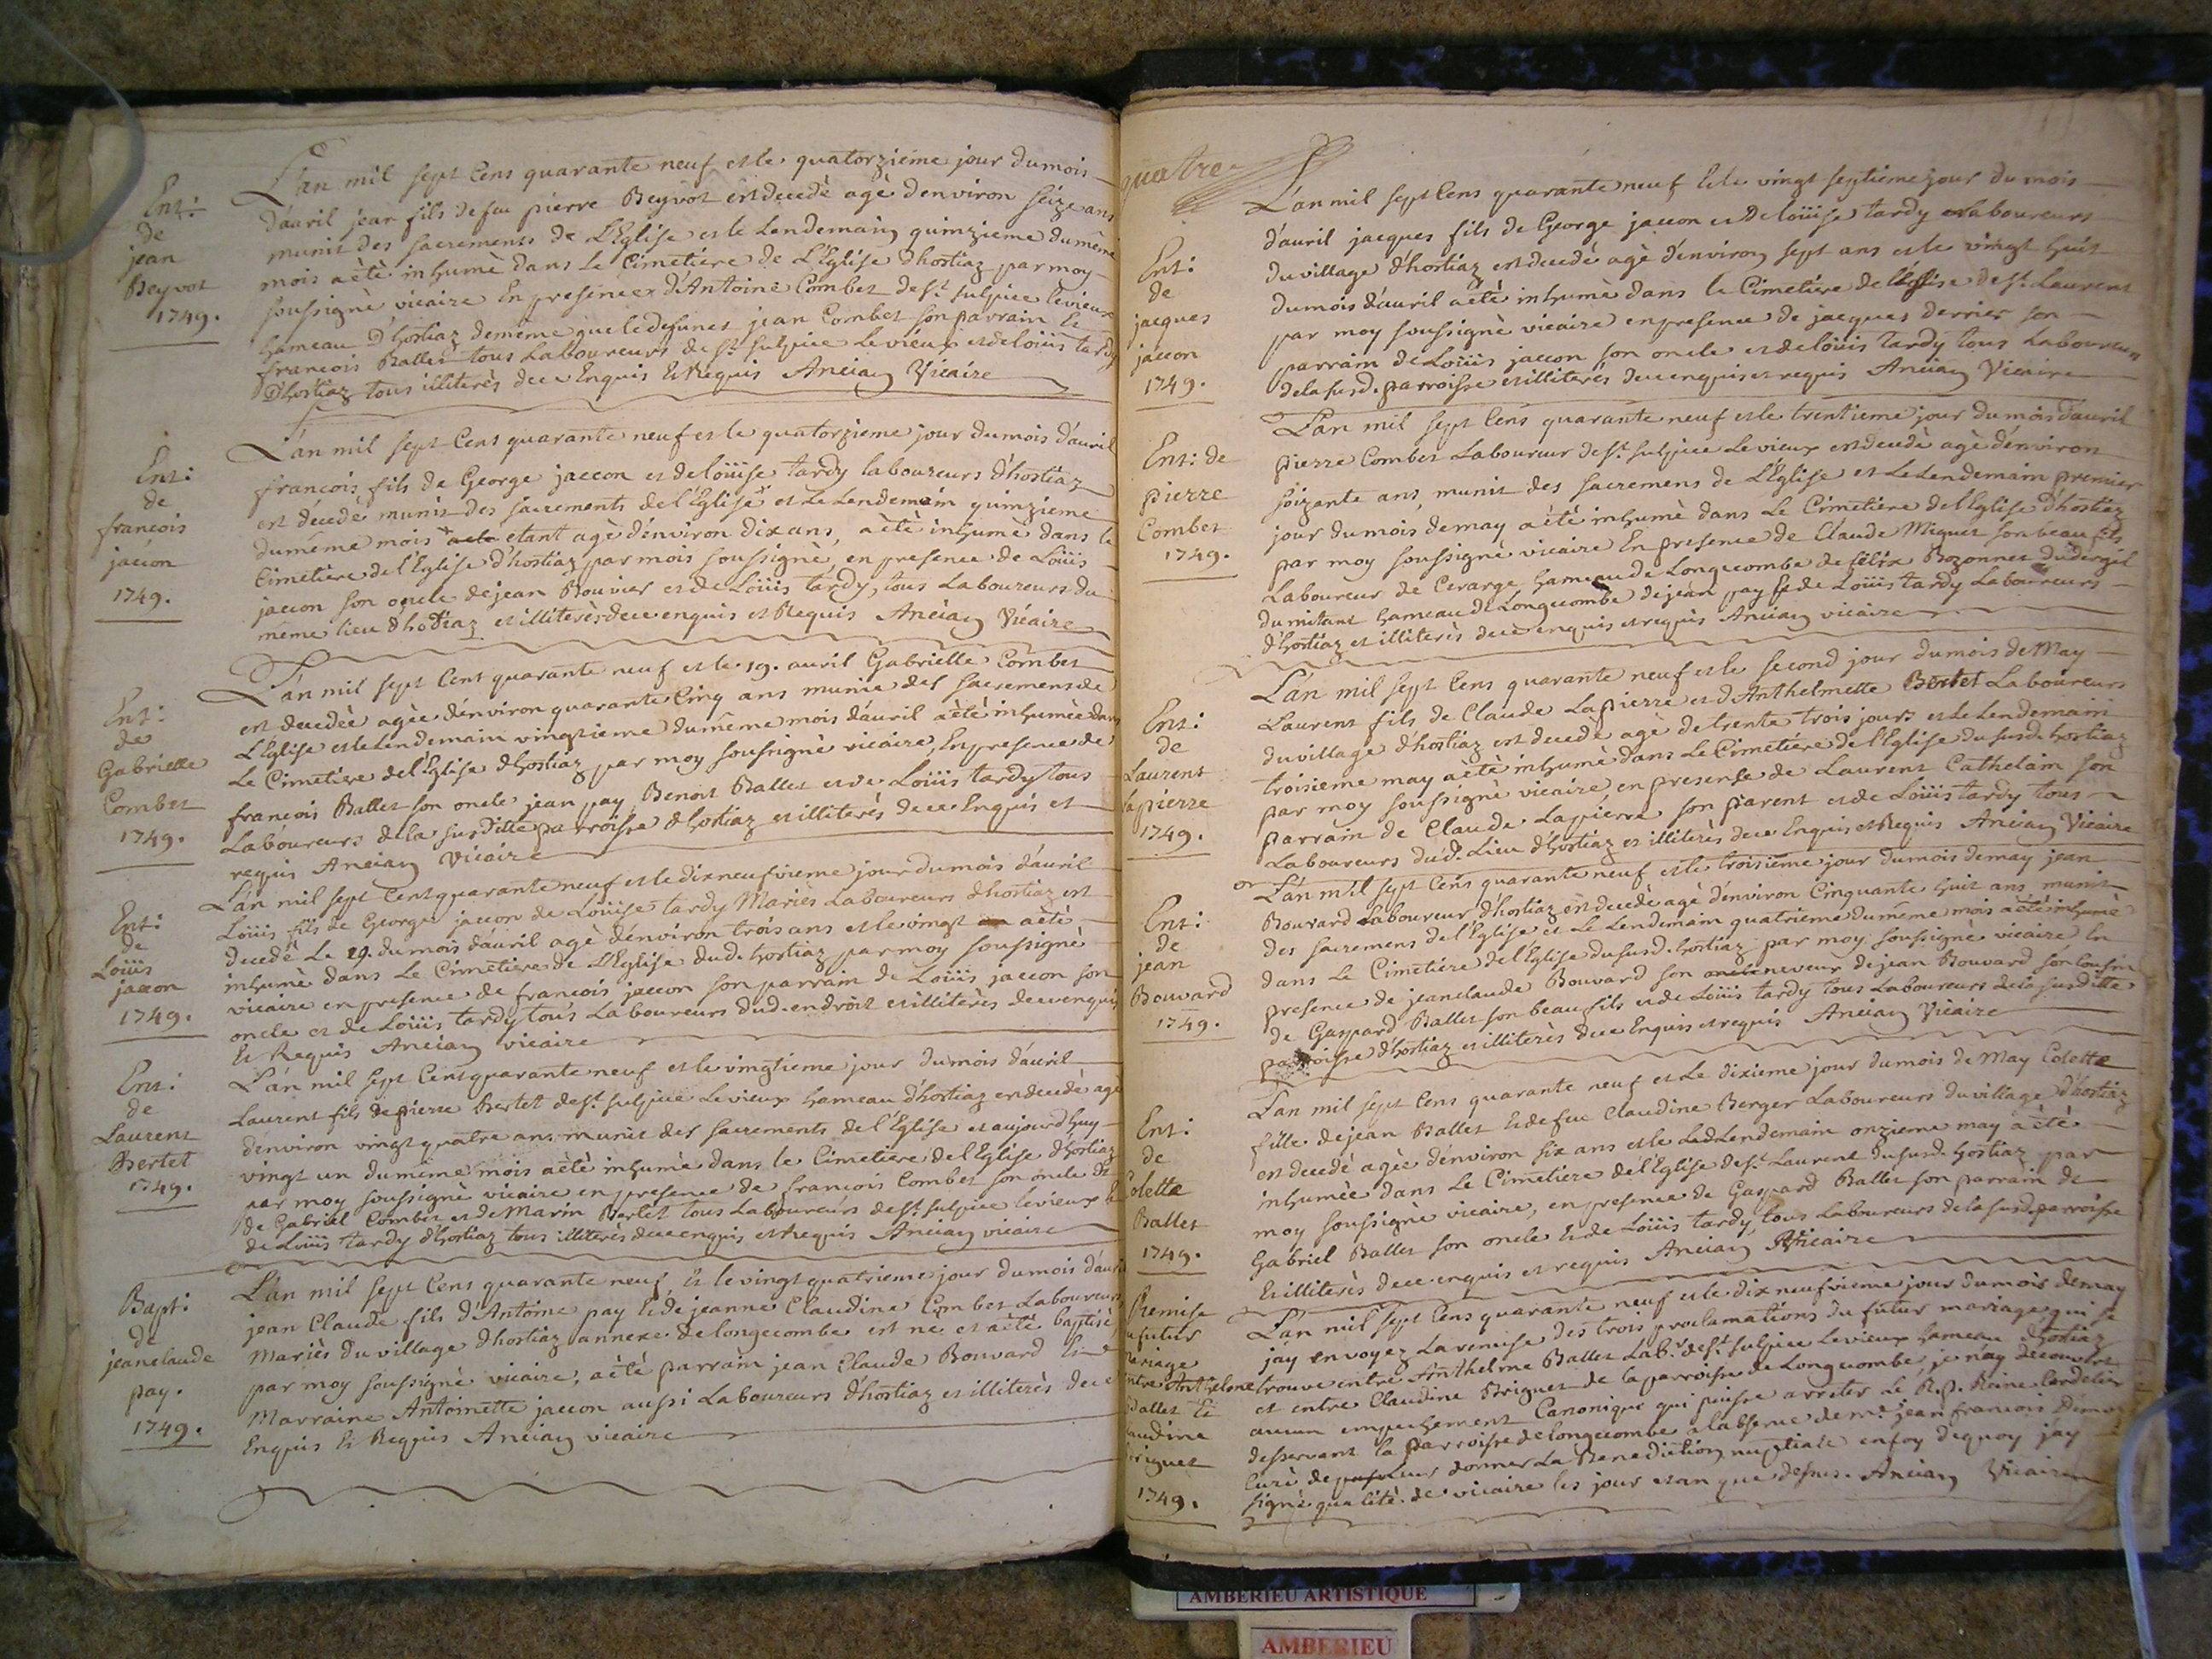 Ent:
de
jean
Beyvot
1749.
L'an mil sept Cens quarante neuf et le quatorzieme jour du mois
d'auril jean fils de feu pierre Beyvot est decedè agè denviron seize ans
munit des sacrements de L'Eglise et le Lendemain quinzieme du mème
mois a ètè inhumè dans Le Cimetiere de L'Eglise dhostiaz par moy
soussignè vicaire En presence d'Antoine Combet de st. sulpice levieux
hameau Dhostiaz demème que le defunct jean Combet son parrain Et
francois Ballet tous Laboureurs de st. sulpice Levieux et de loüis tardy
Dhostiaz tous illiterès de ce Enquis Et Requis Ancian Vicaire
Ent:
de
francois
jaccon
1749.
L'an mil sept Cent quarante neuf et le quatorzieme jour du mois d'auril
francois fils de George jaccon et de loüise tardy laboureurs d'hostiaz
est dècedè munis des sacrements de l'Eglise et Le Lendemain quinzieme
du mème mois etant agè d'environ dix ans, a ètè inhumè dans le
Cimetiere de l'Eglise d'hostiaz par mois soussignè, en presence de Loüis
jaccon son oncle de jean Bouvier et de Loüis tardy, tous Laboureurs du
même lieu d'hostiaz et illiterès de ce enquis et Requis Ancian Vicaire
Ent:
de
Gabrielle
Combet
1749.
L'an mil sept Cent quarante neuf et le 19. auril Gabrielle Combet
est decedèe agèe d'environ quarante Cinq ans munie des sacremens de
L'Eglise et le Lendemain vingtieme du mème mois d'auril a ètè inhumèe dans
Le Cimetiere de l'Eglise dhostiaz par moy soussignè vicaire, En presence de
francois Ballet son oncle jean pay, Benoit Ballet et de Loüis tardy tous
Laboureurs de la susditte parroisse dhostiaz et illiterès de ce Enquis et
requis Ancian Vicaire
Ent:
de
Loüis
jaccon
1749.
L'an mil sept Cent quarante neuf et le dix neufvieme jour du mois d'auril
Loüis fils de George jaccon de Loüise tardy Mariès Laboureurs dhostiaz est
decedè Le 19. du mois d'auril agè d'environ trois ans et le vingt a ètè
inhumè dans Le Cimetiere de L'Eglise dud. hostiaz par moy soussignè
vicaire en presence de francois jaccon son parrain de Loüis jaccon son
oncle et de Loüis tardy tous Laboureurs dud. endroit et illiterès de ce enquis
Et Requis Ancian vicaire
Ent:
de
Laurent
Bertet
1749.
L'an mil sept Cent quarante neuf et le vingtieme jour du mois d'auril
Laurent fils de pierre Bertet de st. sulpice Levieux hameau d'hostiaz est decedè agè
denviron vingt quatre ans munit des sacrements de l'Eglise et aujourd'huy
vingt un du mème mois a ètè inhumè dans le Cimetiere de l'Eglise d'hostiaz
par moy soussignè vicaire en presence de francois Combet son oncle de
de Gabriel Combet et de Marin Bertet tous Laboureurs de st. sulpice levieux Et
de Loüis tardy d'hostiaz tous illiterès de ce enquis et requis Ancian vicaire
Bapt:
de
jeanclaude
pay.
1749.
L'an mil sept Cens quarante neuf Et le vingt quatrieme jour du mois d'auril
jean Claude fils d'Antoine pay Et de jeanne Claudine Combet Laboureurs
Mariès du village dhostiaz annexe de longecombe est nè et a ètè baptisè,
par moy soussignè vicaire, a ètè parrain jean Claude Bouvard Et
Marraine Antoinette jaccon aussi Laboureurs d'hostiaz et illiterès de ce
Enquis Et Requis Ancian vicaire
quatre
Ent:
de
jacques
jaccon
1749.
L'an mil sept Cens quarante neuf Et le vingt septieme jour du mois
d'auril jacques fils de George jaccon et de loüise tardy Laboureurs
du village d'hostiaz est decedè agè d'environ sept ans et le vingt huit
du mois d'auril a ètè inhumè dans le Cimetiere de l'Eglise de st. Laurent
par moy soussignè vicaire en presence de jacques derrier son
parrain de Loüis jaccon son oncle et de loüis tardy tous Laboureurs
de la susd. parroisse et illiterès de ce enquis et requis Ancian Vicaire
Ent: de
pierre
Combet
1749.
L'an mil sept Cens quarante neuf et le trentieme jour du mois d'auril
pierre Combet Laboureur de st. sulpice Le vieux est decedè agè d'environ
soizante ans, munit des sacremens de L'Eglise et Le Lendemain premier
jour du mois de may a ètè inhumè dans Le Cimetiere de l'Eglise d'hostiaz
par moy soussignè vicaire En presence de Claude Miguet son beau fils
Laboureur de Cerarge hameau de Longecombe de felix Bozonnet
du mitant hameau de Longecombe de jean pay Et de Loüis tardy Laboureurs
d'hostiaz et illiterès de ce enquis et requis Ancian vicaire
Ent:
de
Laurent
Lapierre
1749.
L'an mil sept Cens quarante neuf et le second jour du mois de May
Laurent fils de Claude Lapierre et d'Anthelmette Bertet Laboureurs
du village d'hostiaz est decedè agè de trente trois jours et Le Lendemain
troisieme may a ètè inhumè dans Le Cimetiere de l'Eglise du susd. hostiaz
par moy soussignè vicaire en presense de Laurent Cathelain son
parrain de Claude Lapierre son parent et de Loüis tardy tous
Laboureurs dud. Lieu d'hostiaz et illiterès de ce Enquis et Requis Ancian Vicaire
Ent:
de
jean
Bouvard
1749.
L'an mil sept Cens quarante neuf et le troisieme jour du mois de may jean
Bouvard Laboureur d'hostiaz est decedè agè d'environ Cinquante huit ans, munit
des sacremens de l'Eglise et Le Lendemain quatrieme du mème mois a ètè inhumè
dans Le Cimetiere de l'Eglise du susd. hostiaz par moy soussignè vicaire En
presence de jeanclaude Bouvard son neveux de jean Bouvard son cousin
de Gaspard Ballet son beau fils et de Loüis tardy tous Laboureurs de la susditte
parroisse d'hostiaz et illiterès de ce Enquis et requis Ancian Vicaire
Ent:
de
Colette
Ballet
1749.
L'an mil sept Cens quarante neuf et Le dixieme jour du mois de May Colette
fille de jean Ballet Et de feue Claudine Berger Laboureurs du village d'hostiaz
est decedè agèe denviron six ans et le Lendemain onzieme may a ètè
inhumèe dans Le Cimetiere de l'Eglise de st. Laurent du susd. hostiaz par
moy soussignè vicaire, en presence de Gaspard Ballet son parrain de
Gabriel Ballet son oncle Et de Loüis tardy, tous Laboureurs de la susd. parroisse
Et illiterès de ce enquis et requis Ancian Vicaire
Remise
futur
mariage
entre Anthelme
Ballet Et
Claudine
Briguet
1749.
L'an mil sept Cens quarante neuf et le dix neufvieme jour du mois de may
jay envoyez La remise des trois proclamations du futur mariage qui se
trouve entre Anthelme Ballet Labr. de st. sulpice Levieux hameau d'hostiaz
et entre Claudine Briguet de la parroisse de Longecombe, je n'ay decouvert
aucun empechement Canonique qui puisse arreter Le R. p. Reine Cordelier
desservant la parroisse de longecombe a labsence de mr. jean francois
Curè, de leur donner La Benediction nuptiale en foy dequoy jay
signè qualitè de vicaire les jour et an que dessus. Ancian Vicaire
AMBERIEU ARTISTIQUE
AMBERIEU